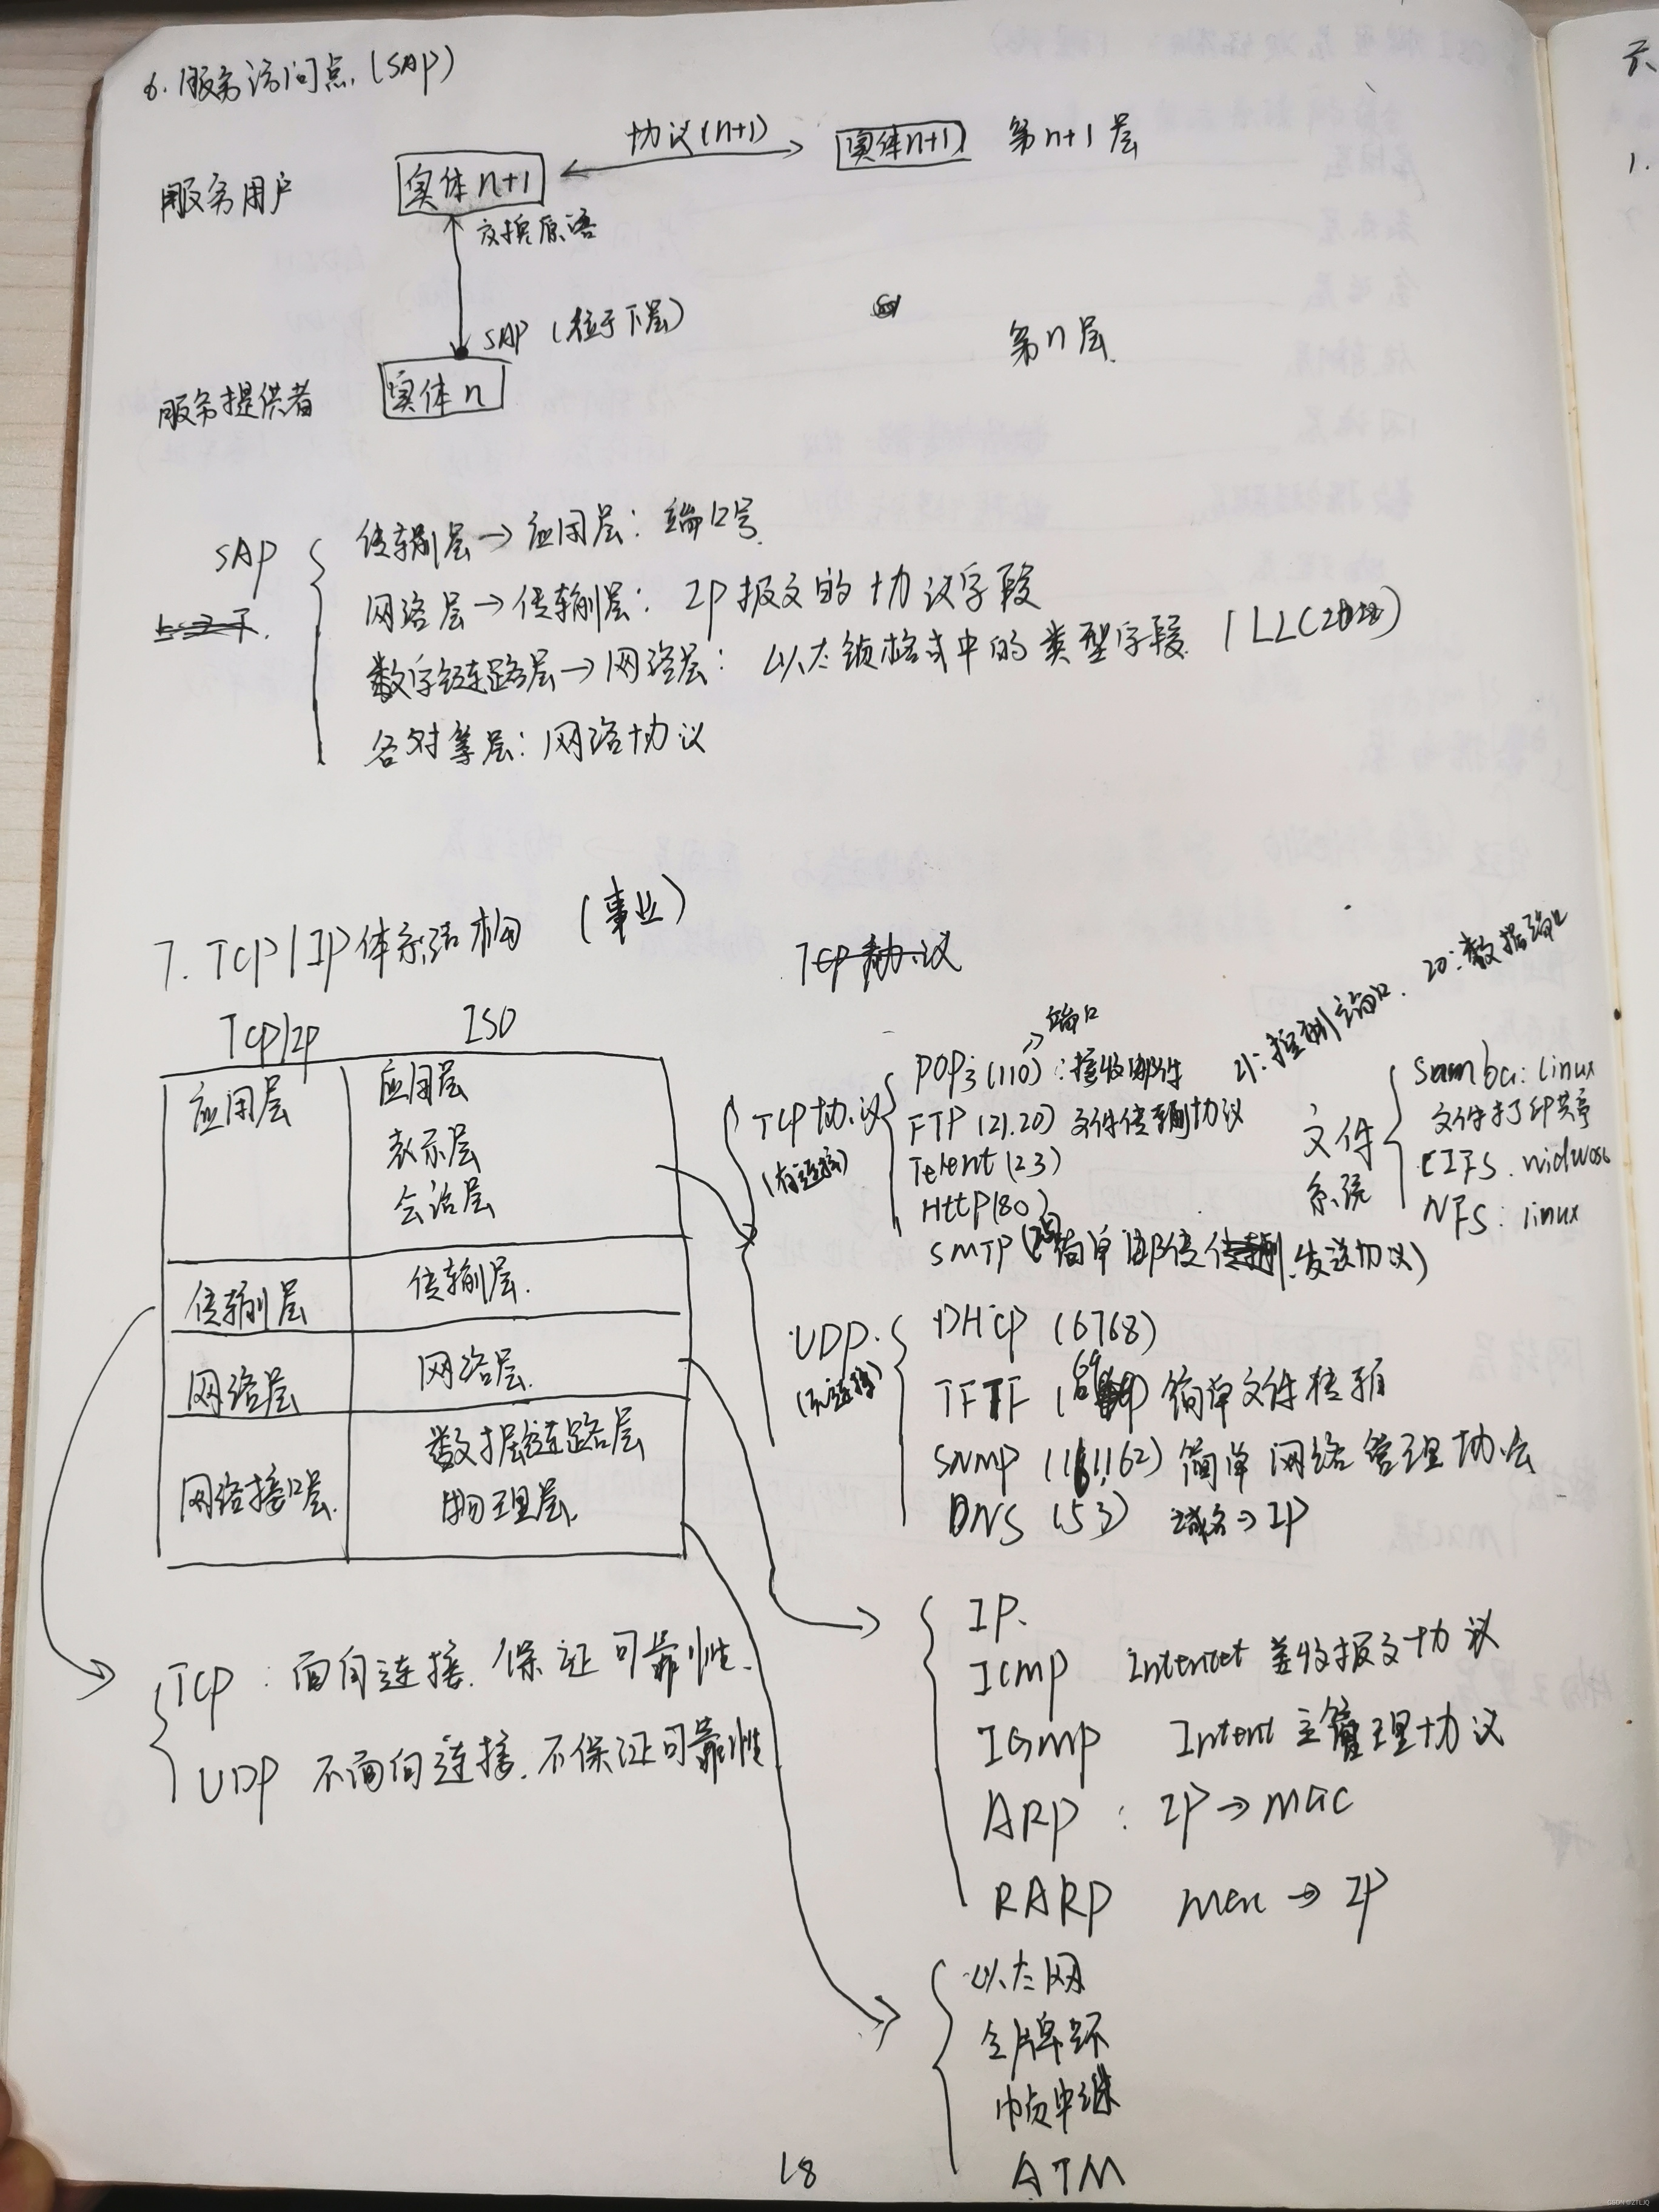 6. 服务访问点 (SAP)
协议(n+1)
服务用户 实体 n+1 实体n+1 第n+1层
交换原语
SAP (位于下层)
第n层
服务提供者 实体 n
SAP
传输层→应用层：端口号
网络层→传输层：IP报文的协议字段
数字链路层→网络层：以太帧格式中的类型字段 (LLC地址)
各对等层：网络协议
7. TCP/IP体系结构 (事业)
TCP 协议
Tcp/Ip ISO
应用层 应用层
表示层
会话层
传输层 传输层
网络层 网络层
网络接口层 数据链路层
物理层
TCP协议
(有连接)
POP3 (110)：接收邮件
端口
FTP (21.20) 文件传输协议
21：控制端口. 20：数据端口
Telent (23)
Http(80)
SMTP (25 简单邮件发送协议)
文件系统
Samba: linux
文件打印共享
CIFS. widwos
NFS: linux
UDP.
(无连接)
DHCP (6768)
TFTF (69) 简单文件传输
SNMP (161,162) 简单网络管理协会
DNS (53) 域名→IP
TCP：面向连接. 保证可靠性.
UDP 不面向连接. 不保证可靠性
IP.
ICMP Internet 差收报文协议
IGMP Intent 主管理协议
ARP : IP → MAC
RARP Mac → IP
以太网
令牌环
帧中继
ATM
18
六
1.
CSDN @ZYLJQ